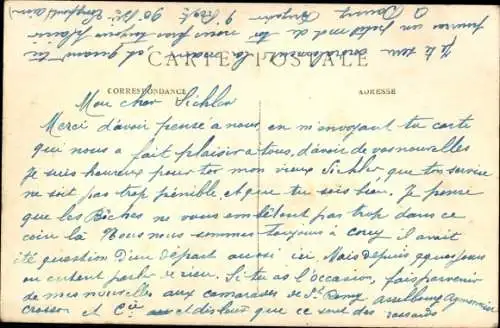 CARTE POSTALE
CORRESPONDANCE ADRESSE
Mon cher Sichler
Merci d'avoir pensé a nous, en m'envoyant ta carte
qui nous a fait plaisir a tous, d'avoir de vos nouvelles
Je suis heureux pour toi mon vieux Sichler, que ton service
ne soit pas trop pénible, et que tu sois bien. Je pense
que les Boches ne vous embêtent pas trop dans ce
coin là Nous nous sommes toujours à il avait
été question d'un départ aussi ici, Mais depuis quelques jours
on entend parler de rien. Si tu as l'occasion, fais parvenir
de mes nouvelles aux camarades de St Remy
et Cie et dis leur que ce sont des
Je te serre cordialement la main, et quand tu
pourras un petit mot de toi nous fera toujours plaisir